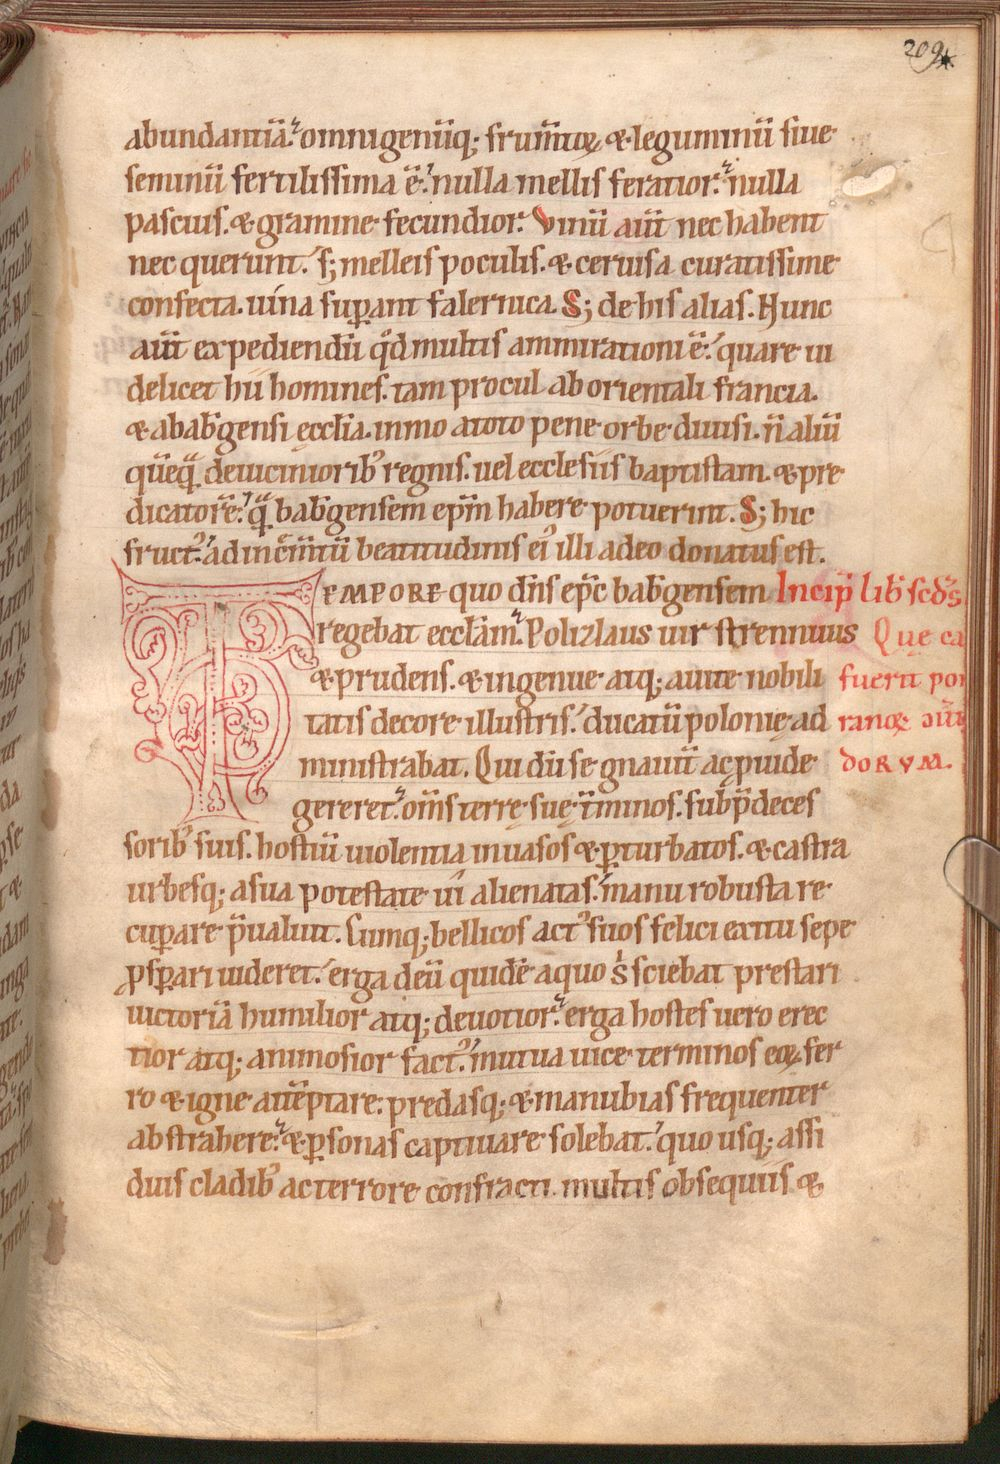 209
abundantiā. omnigenūq; frum̄toꝝ & leguminū siue
seminū fertilissima ē. nulla mellis feratior. nulla
pascuis. & gramine fecundior. Vinū aūt nec habent
nec querunt. s; melleis poculis. & ceruisa curatissime
confecta. uina suꝑant falernica. S; de his alias. Hunc
aūt expediendū qd̄ multis ammirationi ē. quare ui
delicet hii homines. tam procul ab orientali francia.
& a bab̄gensi eccl̄ia. inmo a toto pene orbe diuisi. n̄ aliū
quēq̄ de uicinioribꝰ regnis. uel ecclesiis baptistam. & pre
dicatorē. q̄ bab̄gensem ep̄m habere potuerint. S; hic
fructꝰ. ad incrm̄tū beatitudinis eiꝰ illi adeo donatus est.
TEMPORE quo dn̄s ep̄c bab̄gensem Incip̄ lib̄ scd̄s
regebat eccl̄am. Polizlaus uir strennuus Quę ca
& prudens. & ingenue atq; auite nobili fuerit pom
tatis decore illustris. ducatū polonię ad ranoꝝ aūt
ministrabat. Qui dū se gnauit̄ ac puide dorum.
gereret. om̄s terrę suę t̄minos. sub p̄deces
soribꝰ suis. hostiū uiolentia inuasos & ꝑturbatos. & castra
urbesq; a sua potestate ui alienatas. manu robusta re
cuꝑare p̄ualuit. Cumq; bellicos actꝰ suos felici exitu sepe
ꝓsꝑari uideret. erga deū quidē a quo s̄ sciebat prestari
uictoriā humilior atq; deuotior. erga hostes uero erec
tior atq; animosior factꝰ. mutua uice terminos eoꝝ fer
ro & igne attēptare. predasq; & manubias frequenter
abstrahere. & ꝑsonas captiuare solebat. quo usq; assi
duis cladibꝰ ac terrore confracti. multis obsequiis &